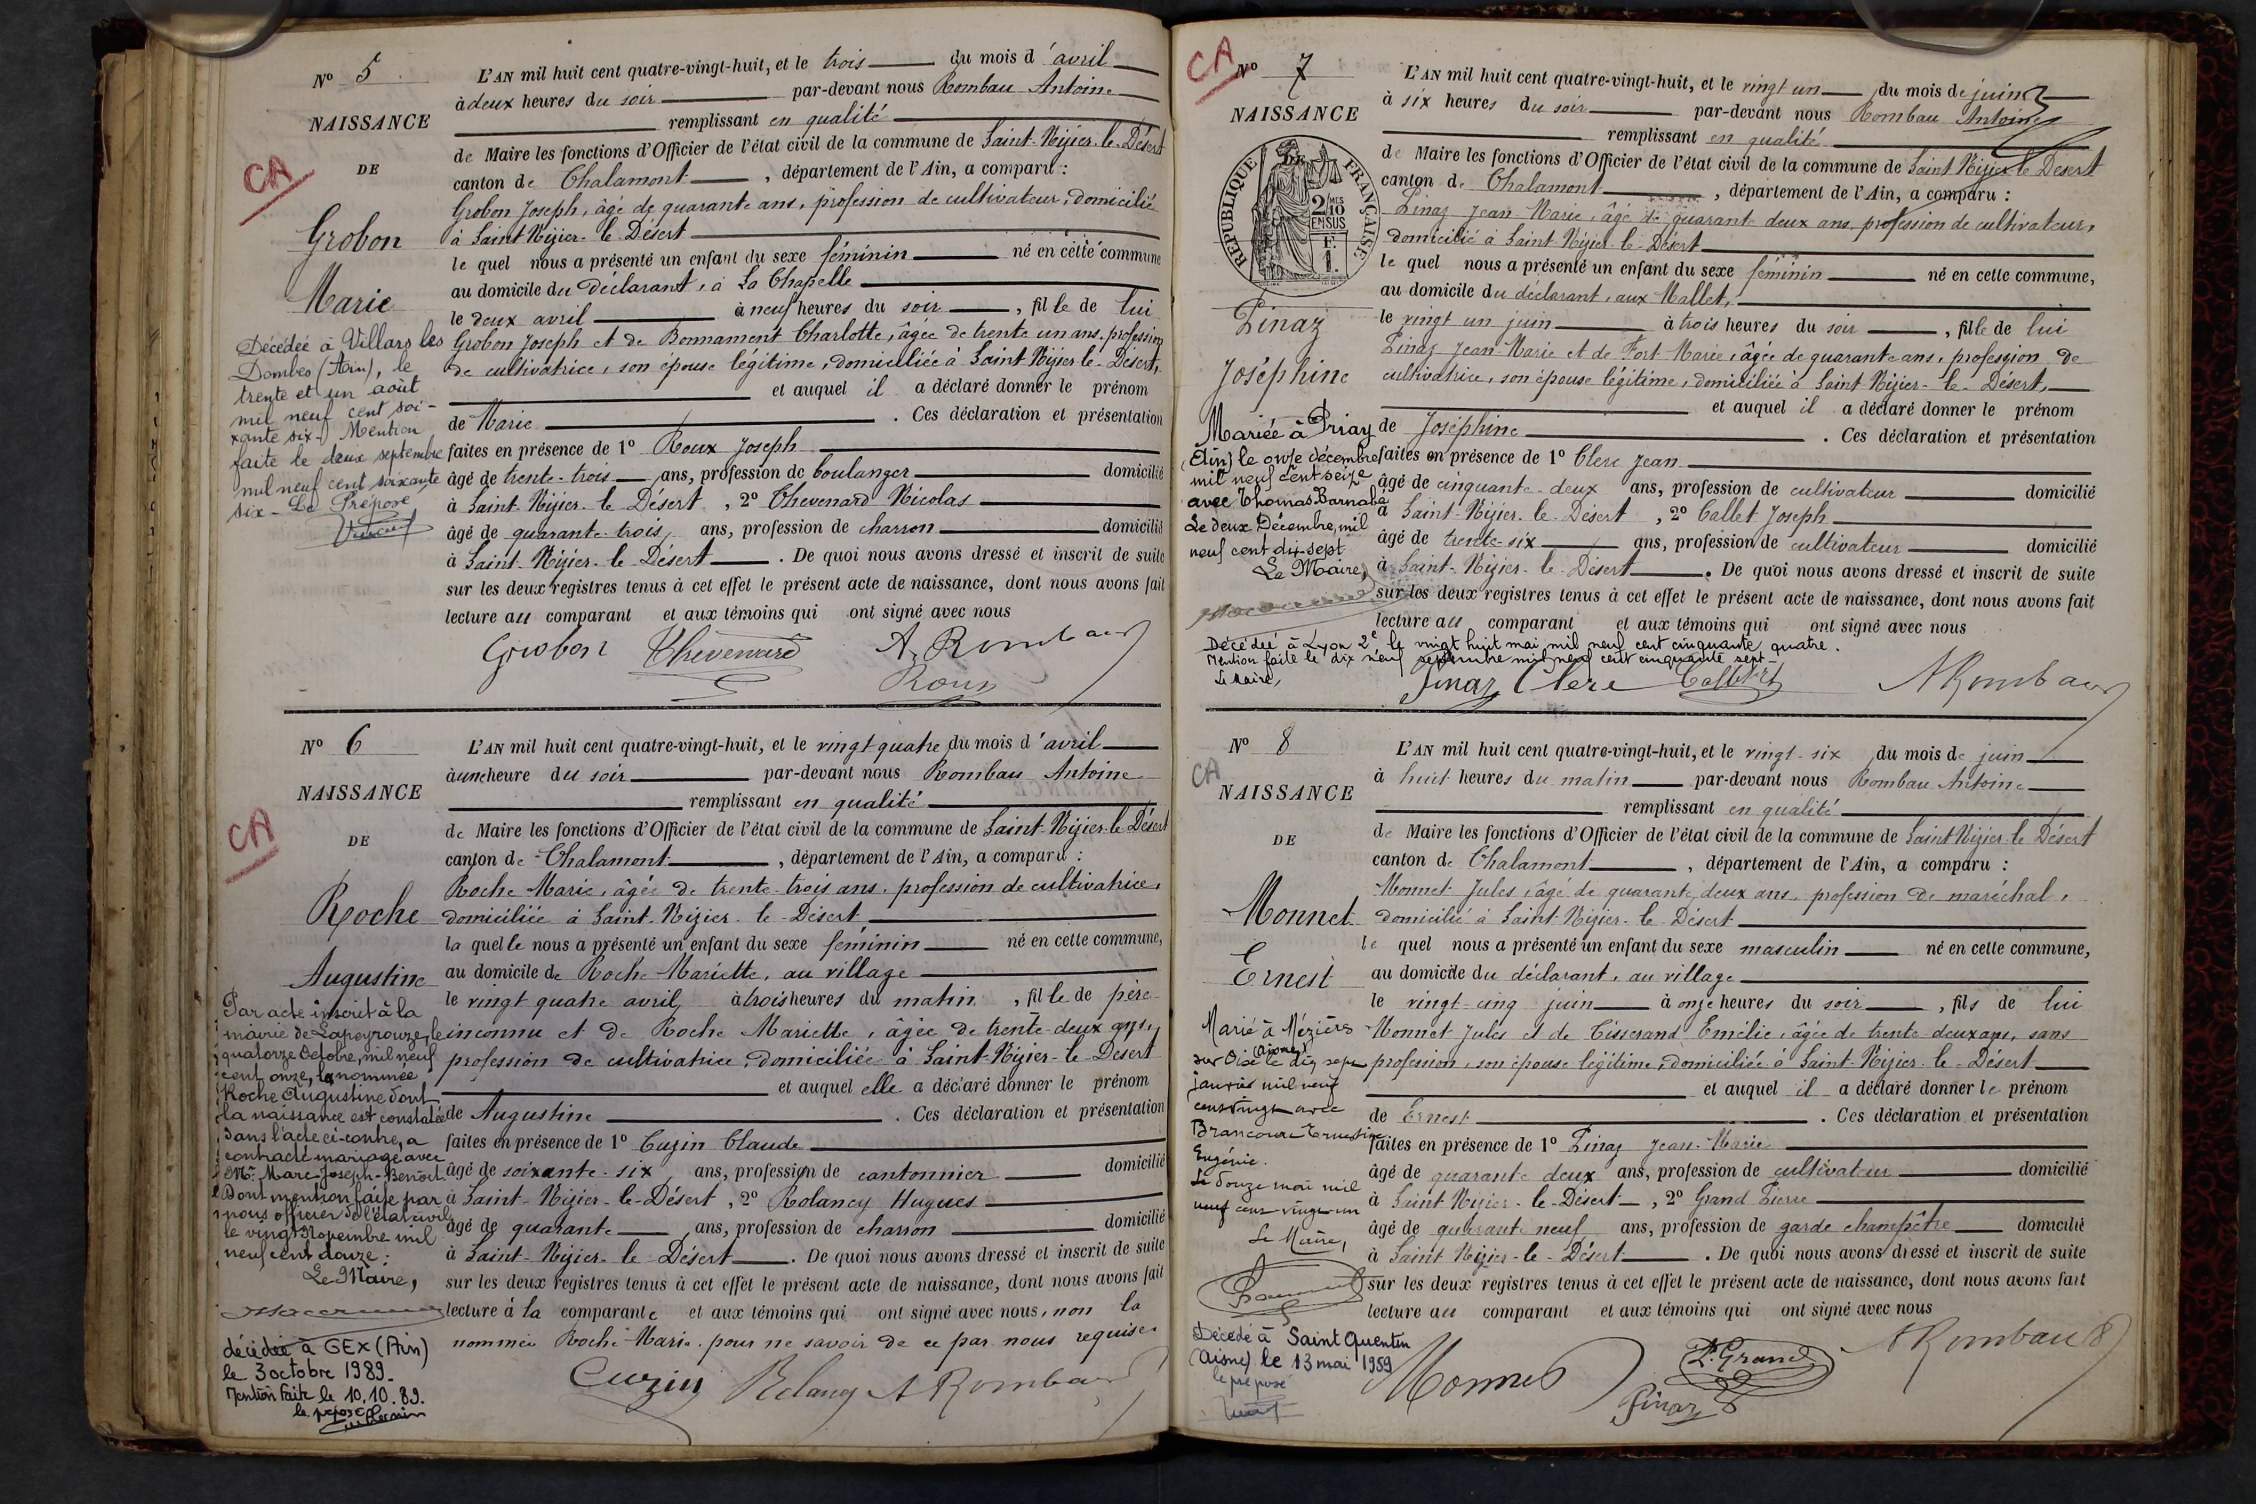 N° 5
NAISSANCE
DE
CA
Grobon
Marie
Décédée à Villars les
Dombes (Ain), le
trente et un août
mil neuf cent soi-
xante six - Mention
faite le deux septembre
mil neuf cent soixante
six - Le Préposé
L'AN mil huit cent quatre-vingt-huit, et le trois du mois d'avril
à deux heures du soir par-devant nous Rombau Antoine
remplissant en qualité
de Maire les fonctions d'Officier de l'état civil de la commune de Saint-Nizier-le-Désert
canton de Chalamont, département de l'Ain, a comparu :
Grobon Joseph, âgé de quarante ans, profession de cultivateur, domicilié
à Saint-Nizier-le-Désert
le quel nous a présenté un enfant du sexe féminin né en cette commune
au domicile du déclarant, à La Chapelle
le deux avril à neuf heures du soir, fille de lui
Grobon Joseph et de Bonnament Charlotte, âgée de trente un ans, profession
de cultivatrice, son épouse légitime, domiciliée à Saint-Nizier-le-Désert,
et auquel il a déclaré donner le prénom
de Marie. Ces déclaration et présentation
faites en présence de 1° Roux Joseph
âgé de trente-trois ans, profession de boulanger domicilié
à Saint-Nizier-le-Désert, 2° Thevenard Nicolas
âgé de quarante-trois, ans, profession de charron domicilié
à Saint-Nizier-le-Désert. De quoi nous avons dressé et inscrit de suite
sur les deux registres tenus à cet effet le présent acte de naissance, dont nous avons fait
lecture au comparant et aux témoins qui ont signé avec nous
Grobon Thevenard A. Rombau
Roux
N° 6
NAISSANCE
DE
CA
Roche
Augustine
Par acte inscrit à la
mairie de Lapeyrouze, le
quatorze Octobre, mil neuf
cent onze, la nommée
Roche Augustine dont
la naissance est constatée
dans l'acte ci-contre, a
contracté mariage avec
Mr. Marc Joseph-Benoit.
Dont mention faite par
nous officier de l'état civil
le vingt Novembre mil
neuf cent douze.
Le Maire,
décédée à GEX (Ain)
le 3 octobre 1989.
Mention faite le 10.10.89.
le préposé
L'AN mil huit cent quatre-vingt-huit, et le vingt quatre du mois d'avril
à une heure du soir par-devant nous Rombau Antoine
remplissant en qualité
de Maire les fonctions d'Officier de l'état civil de la commune de Saint-Nizier-le-Désert
canton de Chalamont, département de l'Ain, a comparu :
Roche Marie, âgée de trente-trois ans, profession de cultivatrice,
domiciliée à Saint-Nizier-le-Désert
la quelle nous a présenté un enfant du sexe féminin né en cette commune,
au domicile de Roche Mariette, au village
le vingt quatre avril à trois heures du matin, fille de père
inconnu et de Roche Mariette, âgée de trente-deux ans,
profession de cultivatrice, domiciliée à Saint-Nizier-le-Désert
et auquel elle a déclaré donner le prénom
de Augustine. Ces déclaration et présentation
faites en présence de 1° Cuzin Claude
âgé de soixante-six ans, profession de cantonnier domicilié
à Saint-Nizier-le-Désert, 2° Rolancy Hugues
âgé de quarante ans, profession de charron domicilié
à Saint-Nizier-le-Désert. De quoi nous avons dressé et inscrit de suite
sur les deux registres tenus à cet effet le présent acte de naissance, dont nous avons fait
lecture à la comparante et aux témoins qui ont signé avec nous, non la
nommée Roche Marie pour ne savoir de ce par nous requise
Cuzin Rolancy A Rombau
CA
N° 7
NAISSANCE
REPUBLIQUE FRANÇAISE
2/10 MES
EN SUS
F.
1.
Pinaz
Joséphine
Mariée à Priay
(Ain) le onze décembre
mil neuf cent seize
avec Thomas Barnabé
Le deux Décembre, mil
neuf cent dix-sept
Le Maire,
L'AN mil huit cent quatre-vingt-huit, et le vingt un du mois de juin
à six heures du soir par-devant nous Rombau Antoine
remplissant en qualité
de Maire les fonctions d'Officier de l'état civil de la commune de Saint Nizier le Désert
canton de Chalamont, département de l'Ain, a comparu :
Pinaz Jean-Marie, âgé de quarante deux ans, profession de cultivateur,
domicilié à Saint-Nizier-le-Désert
le quel nous a présenté un enfant du sexe féminin né en cette commune,
au domicile du déclarant, aux Mallet,
le vingt un juin à trois heures du soir, fille de lui
Pinaz Jean Marie et de Fort Marie, âgée de quarante ans, profession de
cultivatrice, son épouse légitime, domiciliée à Saint-Nizier-le-Désert,
et auquel il a déclaré donner le prénom
de Joséphine. Ces déclaration et présentation
faites en présence de 1° Clerc Jean
âgé de cinquante-deux ans, profession de cultivateur domicilié
à Saint-Nizier-le-Désert, 2° Collet Joseph
âgé de trente-six ans, profession de cultivateur domicilié
à Saint-Nizier-le-Désert. De quoi nous avons dressé et inscrit de suite
sur les deux registres tenus à cet effet le présent acte de naissance, dont nous avons fait
lecture au comparant et aux témoins qui ont signé avec nous
Décédée à Lyon 2e le vingt huit mai mil neuf cent cinquante quatre.
Mention faite le dix neuf septembre mil neuf cent cinquante sept-
Le Maire,
Pinaz Clerc Collet A Rombau
N° 8
CA
NAISSANCE
DE
Monnet
Ernest
Marié à Mézières
sur Oise (Aisne) le dix sept
janvier mil neuf
cent vingt avec
Brancourt Ernestine
Eugénie.
Le douze mai mil
neuf cent vingt un
Le Maire,
Décédé à Saint Quentin
(Aisne) le 13 mai 1959
le préposé
L'AN mil huit cent quatre-vingt-huit, et le vingt-six du mois de juin
à huit heures du matin par-devant nous Rombau Antoine
remplissant en qualité
de Maire les fonctions d'Officier de l'état civil de la commune de Saint Nizier-le-Désert
canton de Chalamont, département de l'Ain, a comparu :
Monnet Jules, âgé de quarante deux ans, profession de maréchal,
domicilié à Saint-Nizier-le-Désert
le quel nous a présenté un enfant du sexe masculin né en cette commune,
au domicile du déclarant, au village
le vingt-cinq juin à onze heures du soir, fils de lui
Monnet Jules et de Tisserand Emélie, âgée de trente deux ans, sans
profession, son épouse légitime, domiciliée à Saint-Nizier-le-Désert
et auquel il a déclaré donner le prénom
de Ernest. Ces déclaration et présentation
faites en présence de 1° Pinaz Jean-Marie
âgé de quarante-deux ans, profession de cultivateur domicilié
à Saint Nizier-le-Désert, 2° Grand Pierre
âgé de quarante neuf ans, profession de garde champêtre domicilié
à Saint Nizier-le-Désert. De quoi nous avons dressé et inscrit de suite
sur les deux registres tenus à cet effet le présent acte de naissance, dont nous avons fait
lecture au comparant et aux témoins qui ont signé avec nous
Monnet P. Grand A Rombau
Pinaz